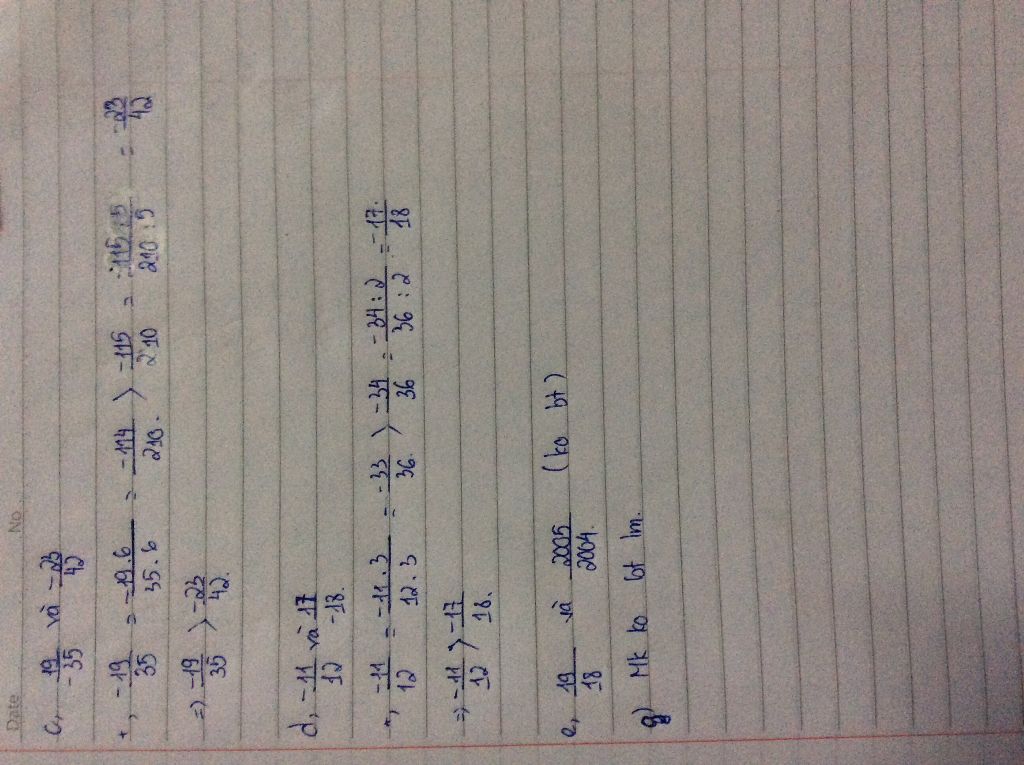 Date No.
c, 19/-35 và -23/42
+, -19/35 = -19.6/35.6 = -114/210. > -115/210 = -115:5/210:5 = -23/42
=) -19/35 > -23/42.
d, -11/12 và 17/-18.
+, -11/12 = -11.3/12.3 = -33/36. > -34/36 = -34:2/36:2 = -17./18
=, -11/12 > -17/18.
e, 19/18 và 2005/2004. (ko bt)
g) Mk ko bt lm.